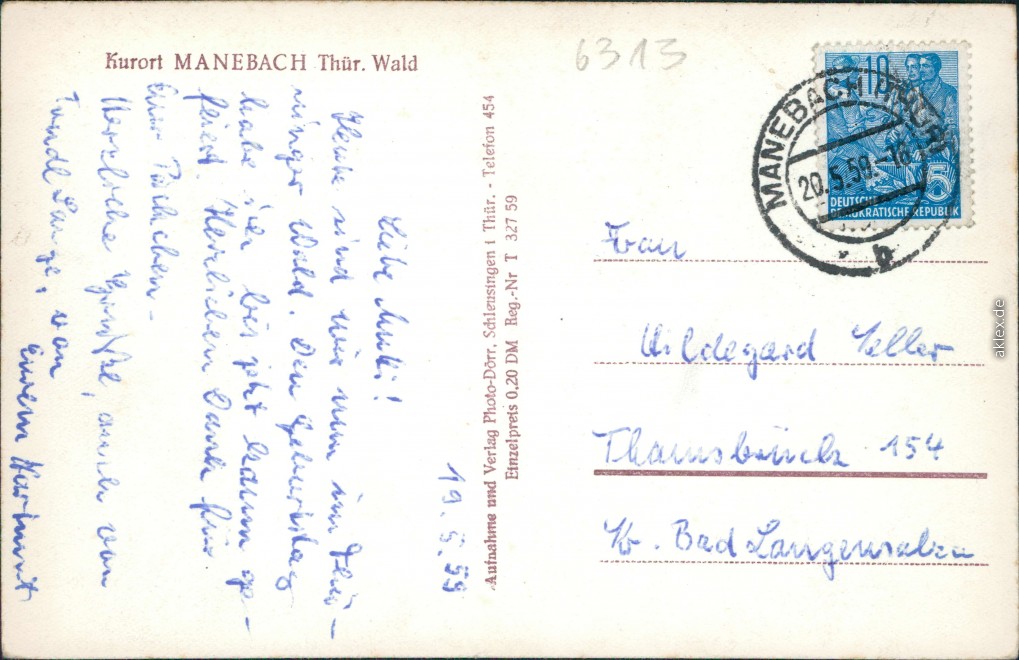 Kurort MANEBACH Thür. Wald
6313
19.5.59
Liebe Mutti!
Heute sind wir nun im Thü-
ringer Wald. Den Geburtstag
habe ich bis jetzt kaum ge-
feiert. Herzlichen Dank für
Eure Päckchen -
Herzliche Grüße, auch von
Lange, von
Eurem Hartmut
Aufnahme und Verlag Photo-Dörr, Schleusingen i Thür. - Telefon 454
Einzelpreis 0,20 DM Reg.-Nr T 327 59
10
+5
DEUTSCHE
DEMOKRATISCHE REPUBLIK
MANEBACH (THÜR)
20.5.59.-18
b
Frau
Hildegard Seller
Thamsbrück 154
Kr. Bad Langensalza
aklex.de